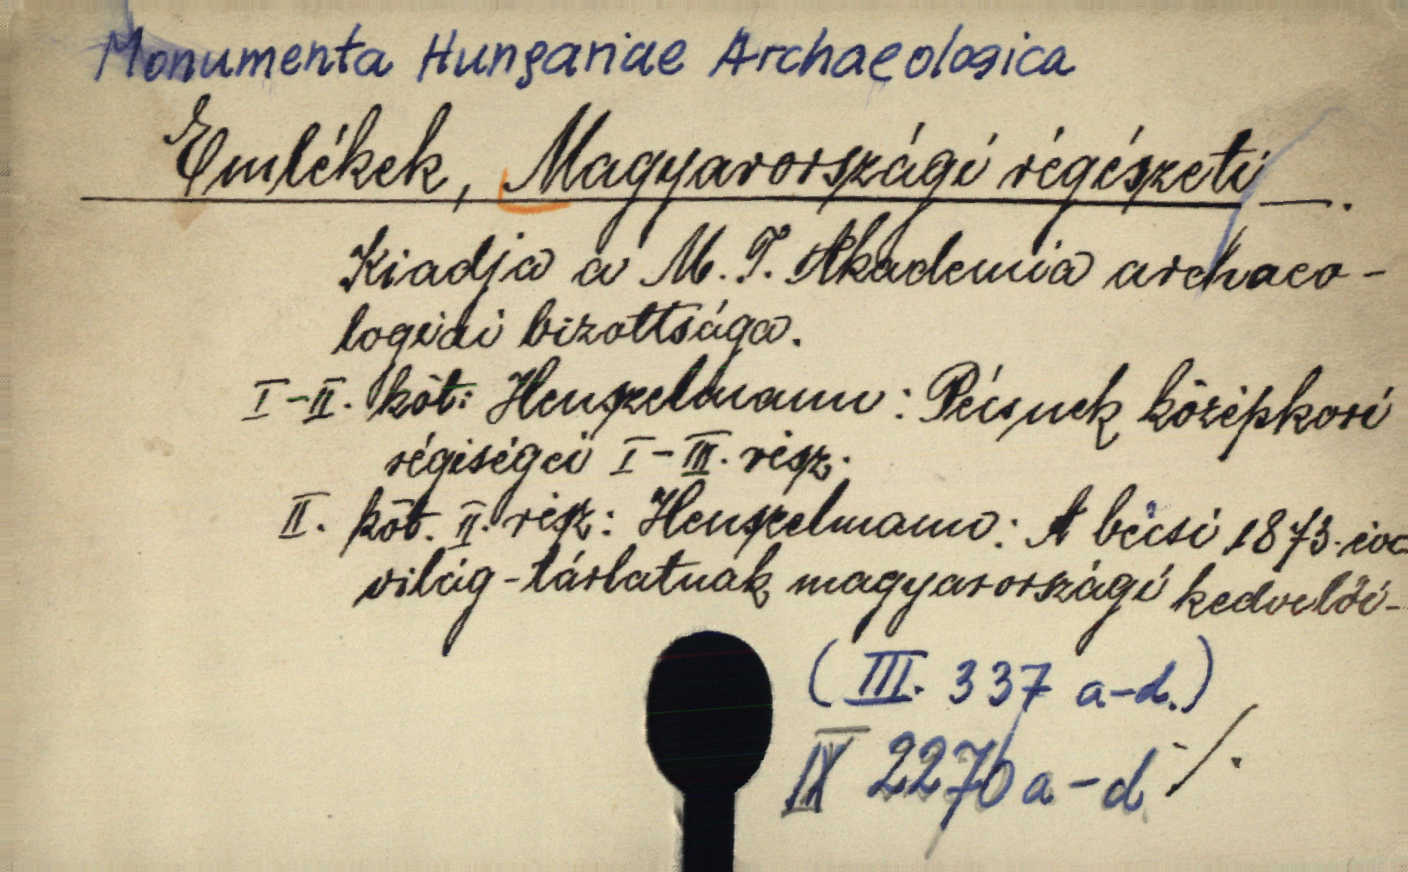 Monumenta Hungariae Archaeologica
Emlékek, Magyarországi régészeti —.
Kiadja a M. T. Akademia archaeo-
logiai bizottsága.
I-II. köt: Henszelmann: Pécsnek középkori
régiségei I-III. rész.
II. köt. II. rész: Henszelmann: A bécsi 1873. évi
világ-tárlatnak magyarországi kedvelői-
(III. 337 a-d.)
IX 2270 a-d ./.